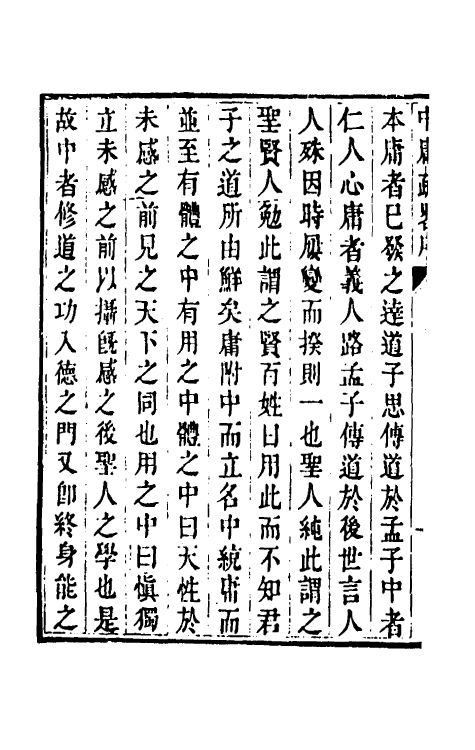 本庸者已發之達道子思傳道於孟子中者
仁人心庸者義人路孟子傳道於後世言人
人殊因時屢變而揆則一也聖人純此謂之
聖賢人勉此謂之賢百姓日用此而不知君
子之道所由鮮矣庸附中而立名中統庸而
並至有體之中有用之中體之中曰天性於
未感之前見之天下之同也用之中曰愼獨
立未感之前以攝旣感之後聖人之學也是
故中者修道之功入德之門又卽終身能之